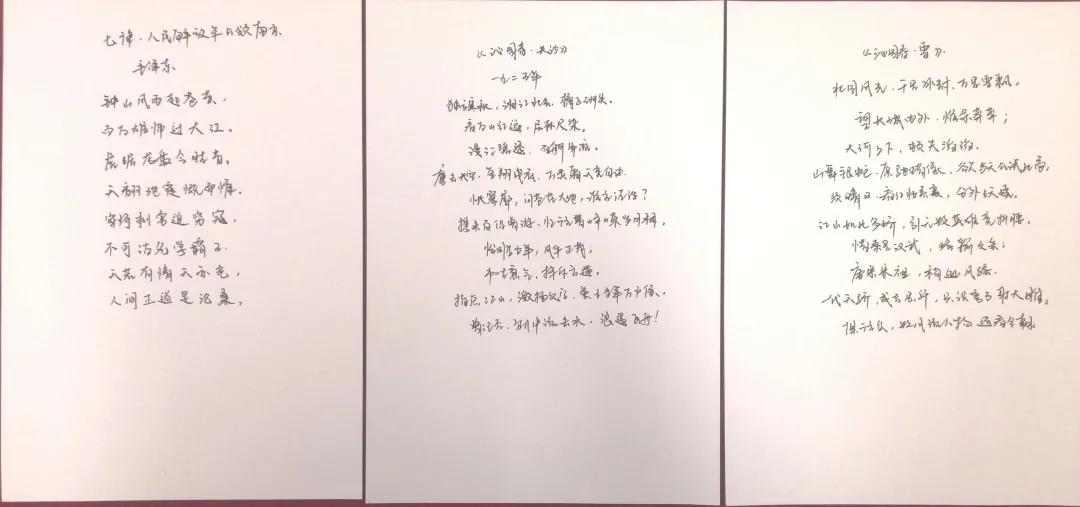 七律·人民解放军占领南京
毛泽东
钟山风雨起苍黄,
百万雄师过大江。
虎踞龙盘今胜昔,
天翻地覆慨而慷。
宜将剩勇追穷寇,
不可沽名学霸王.
天若有情天亦老,
人间正道是沧桑。
《沁园春·长沙》
一九二五年
独立寒秋,湘江北去,橘子洲头。
看万山红遍,层林尽染。
漫江碧透,百舸争流。
鹰击长空,鱼翔浅底,万类霜天竞自由.
怅寥廓,问苍茫大地,谁主沉浮?
携来百侣曾游,忆往昔峥嵘岁月稠.
恰同学少年,风华正茂;
书生意气,挥斥方遒。
指点江山,激扬文字,粪土当年万户侯.
曾记否,到中流击水,浪遏飞舟!
《沁园春·雪》.
北国风光,千里冰封,万里雪飘。
望长城内外,惟余莽莽;
大河上下,顿失滔滔.
山舞银蛇,原驰蜡象,欲与天公试比高.
须晴日,看红装素裹,分外妖娆.
江山如此多娇,引无数英雄竞折腰.
惜秦皇汉武,略输文采;
唐宗宋祖,稍逊风骚.
一代天骄,成吉思汗,只识弯弓射大雕。
俱往矣,数风流人物,还看今朝